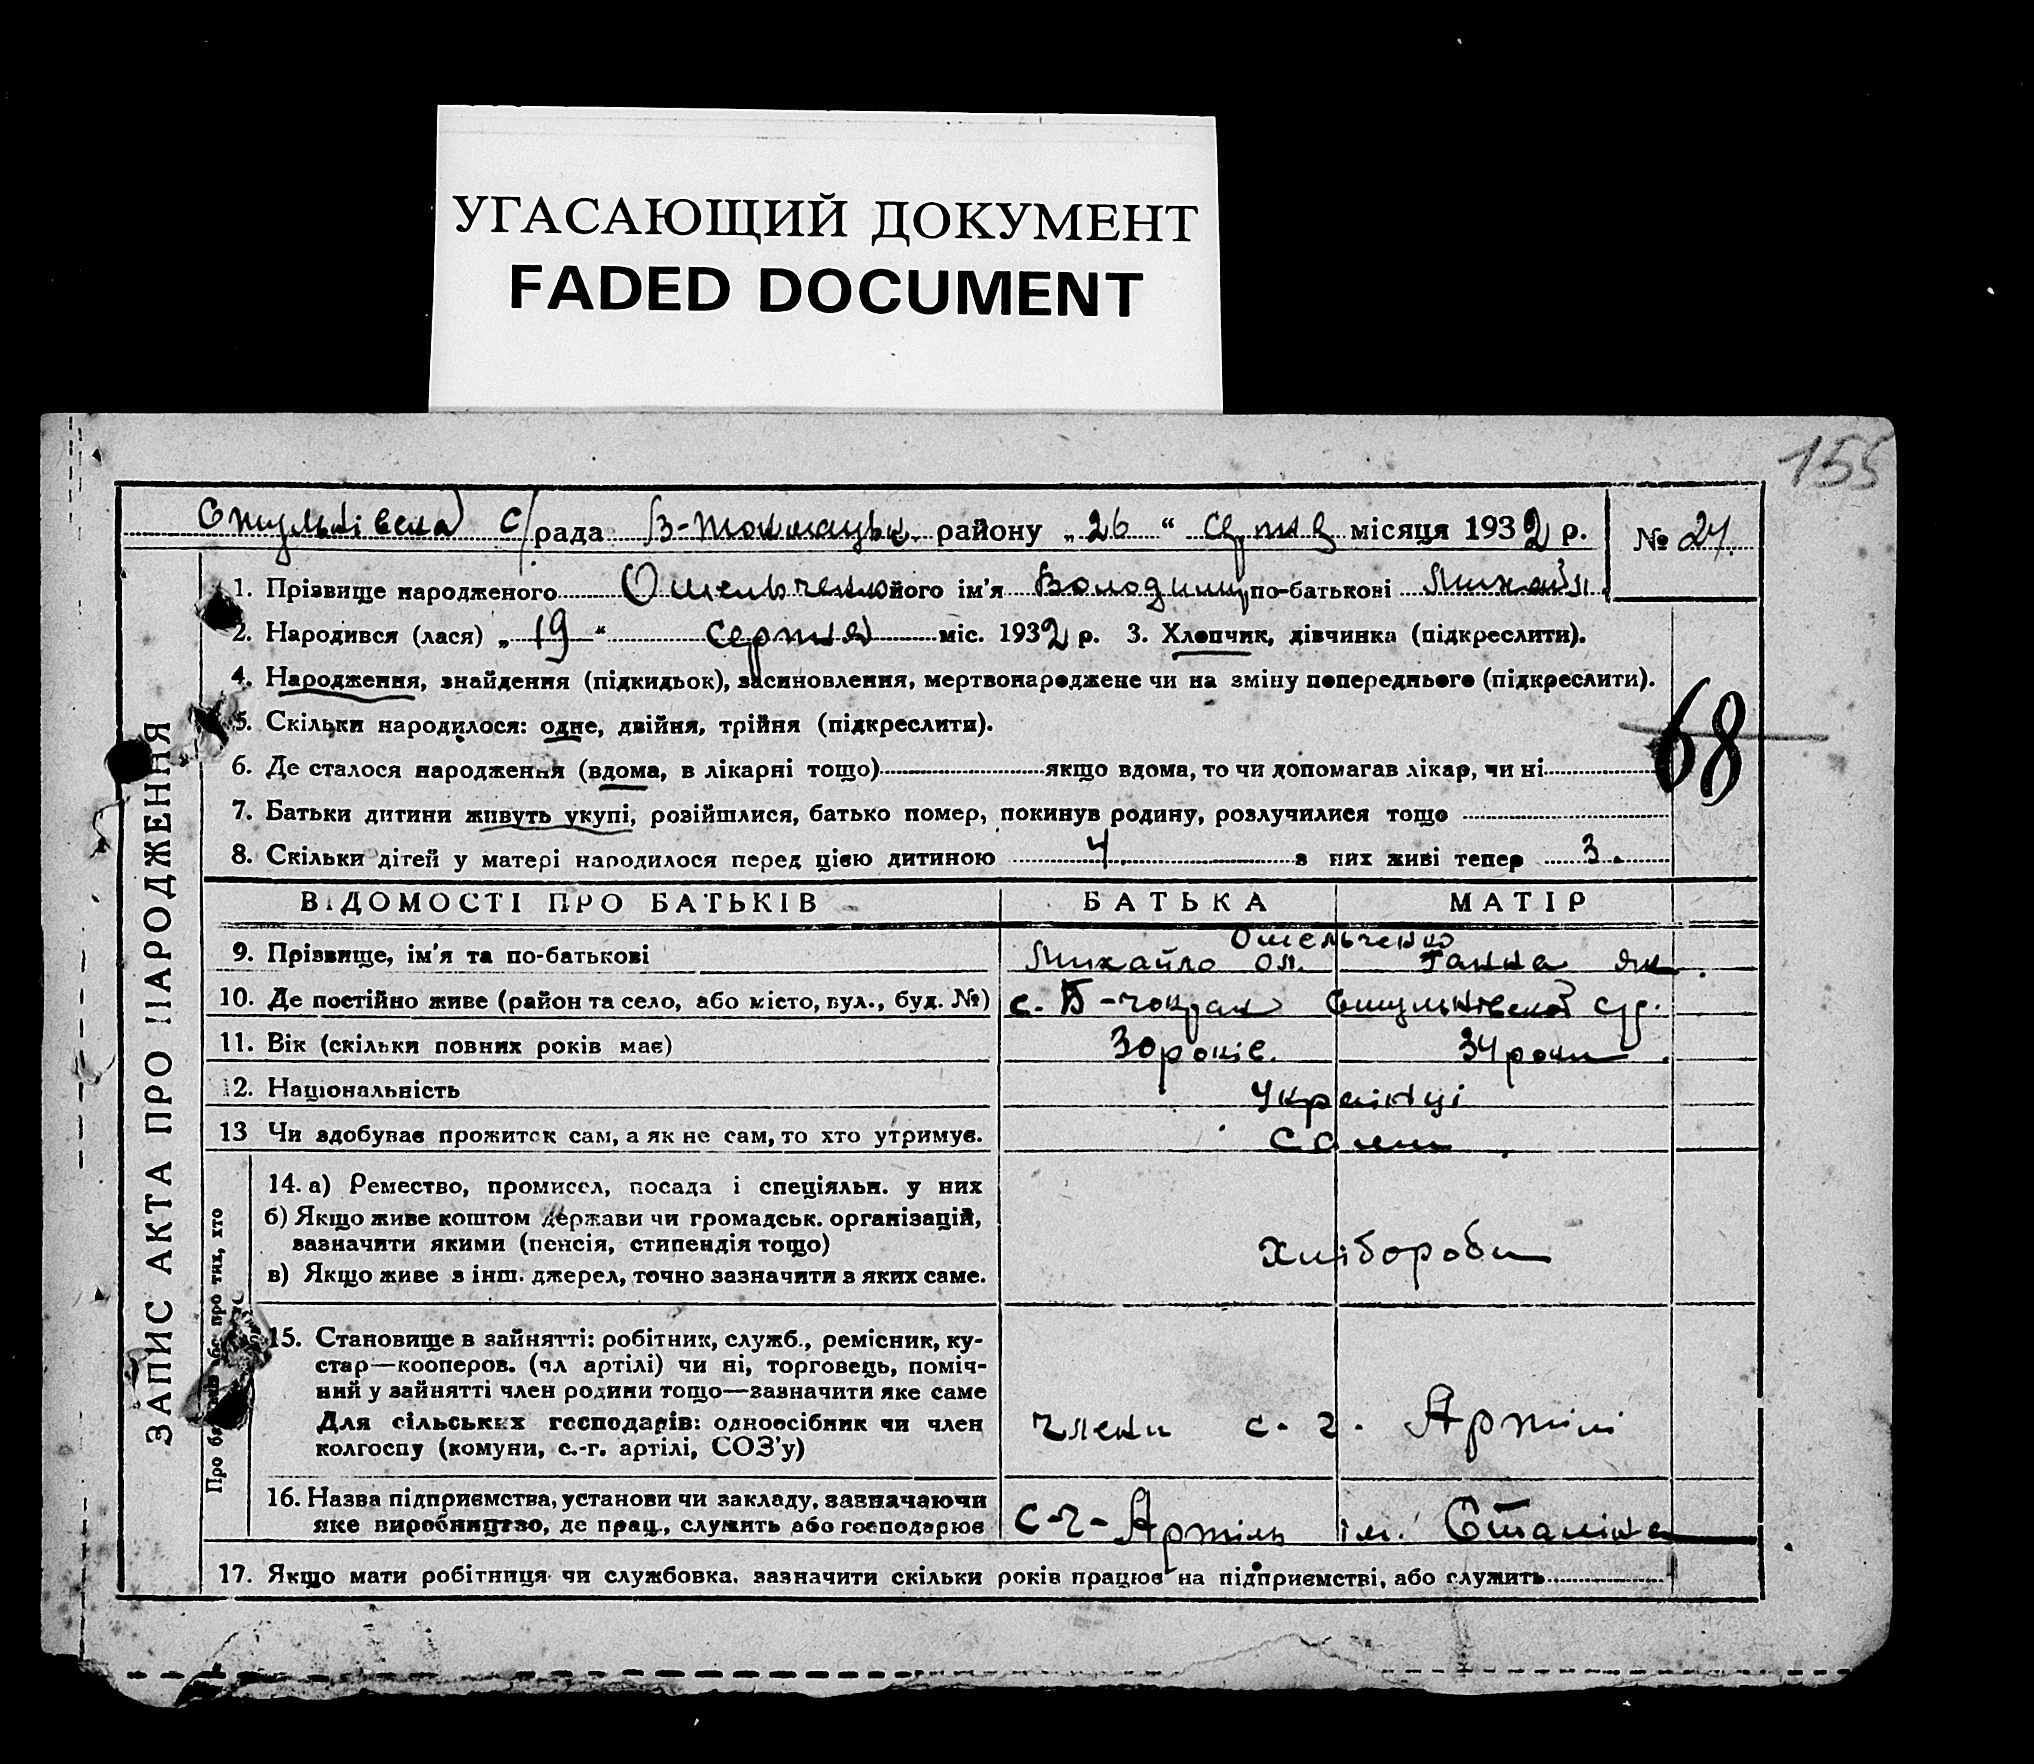 УГАСАЮЩИЙ ДОКУМЕНТ
FADED DOCUMENT
155
Стульнівська с/рада В-Токмацьк. району „ 26 “ серпня місяця 1932 р. № 27.
ЗАПИС АКТА ПРО НАРОДЖЕННЯ
1. Прізвище народженого Омельченко його ім'я Володимир по-батькові Михайл.
2. Народився (лася) „ 19 “ серпня міс. 1932 р. 3. Хлопчик, дівчинка (підкреслити).
4. Народження, знайдення (підкидьок), засиновлення, мертвонароджене чи на зміну попереднього (підкреслити).
68
5. Скільки народилося: одне, двійня, трійня (підкреслити).
6. Де сталося народження (вдома, в лікарні тощо) якщо вдома, то чи допомагав лікар, чи ні
7. Батьки дитини живуть укупі, розійшлися, батько помер, покинув родину, розлучилися тощо
8. Скільки дітей у матері народилося перед цією дитиною 4. з них живі тепер 3.
ВІДОМОСТІ ПРО БАТЬКІВ БАТЬКА МАТІР
Омельченко
9. Прізвище, ім'я та по-батькові Михайло Ом. Ганна Як.
10. Де постійно живе (район та село, або місто, вул., буд. №) с. Б-чокрак Стульнівської с/р.
11. Вік (скільки повних років має) 30 років. 34 роки.
12. Національність Українці
13 Чи здобуває прожиток сам, а як не сам, то хто утримує. Самі
Про батьків або про тих, хто
14. а) Ремество, промисел, посада і спеціяльн. у них
б) Якщо живе коштом держави чи громадськ. організацій,
зазначити якими (пенсія, стипендія тощо)
Хлібороби
в) Якщо живе з інш. джерел, точно зазначити з яких саме.
15. Становище в зайнятті: робітник, служб., ремісник, ку-
стар—кооперов. (чл артілі) чи ні, торговець, поміч-
ний у зайнятті член родини тощо—зазначити яке саме
Для сільських господарів: одноосібник чи член
колгоспу (комуни, с.-г. артілі, СОЗ'у)
члени с. г. Артілі
16. Назва підприємства, установи чи закладу, зазначаючи
яке виробництво, де прац., служить або господарює
с-г- Артіль ім. Сталіна
17. Якщо мати робітниця чи службовка, зазначити скільки років працює на підприємстві, або служить